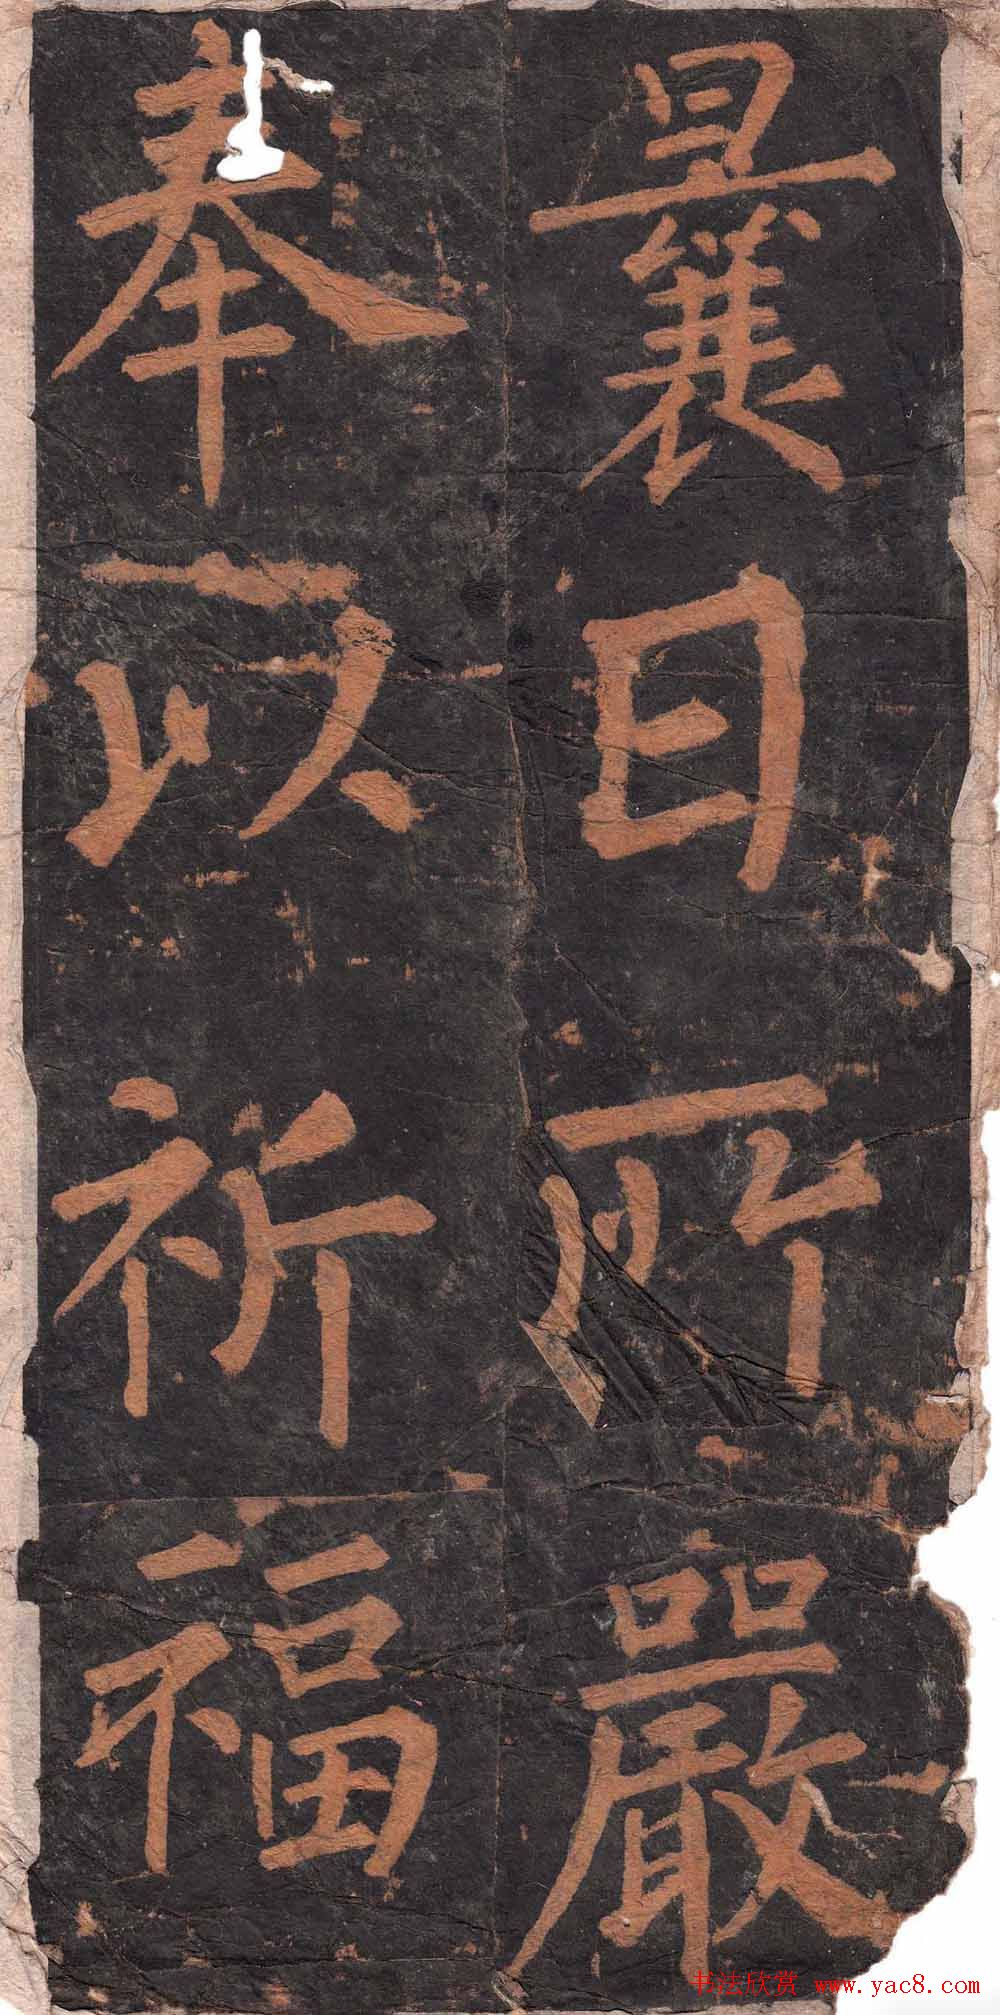 曩日所嚴
奉以祈福
书法欣赏 www.yac8.com